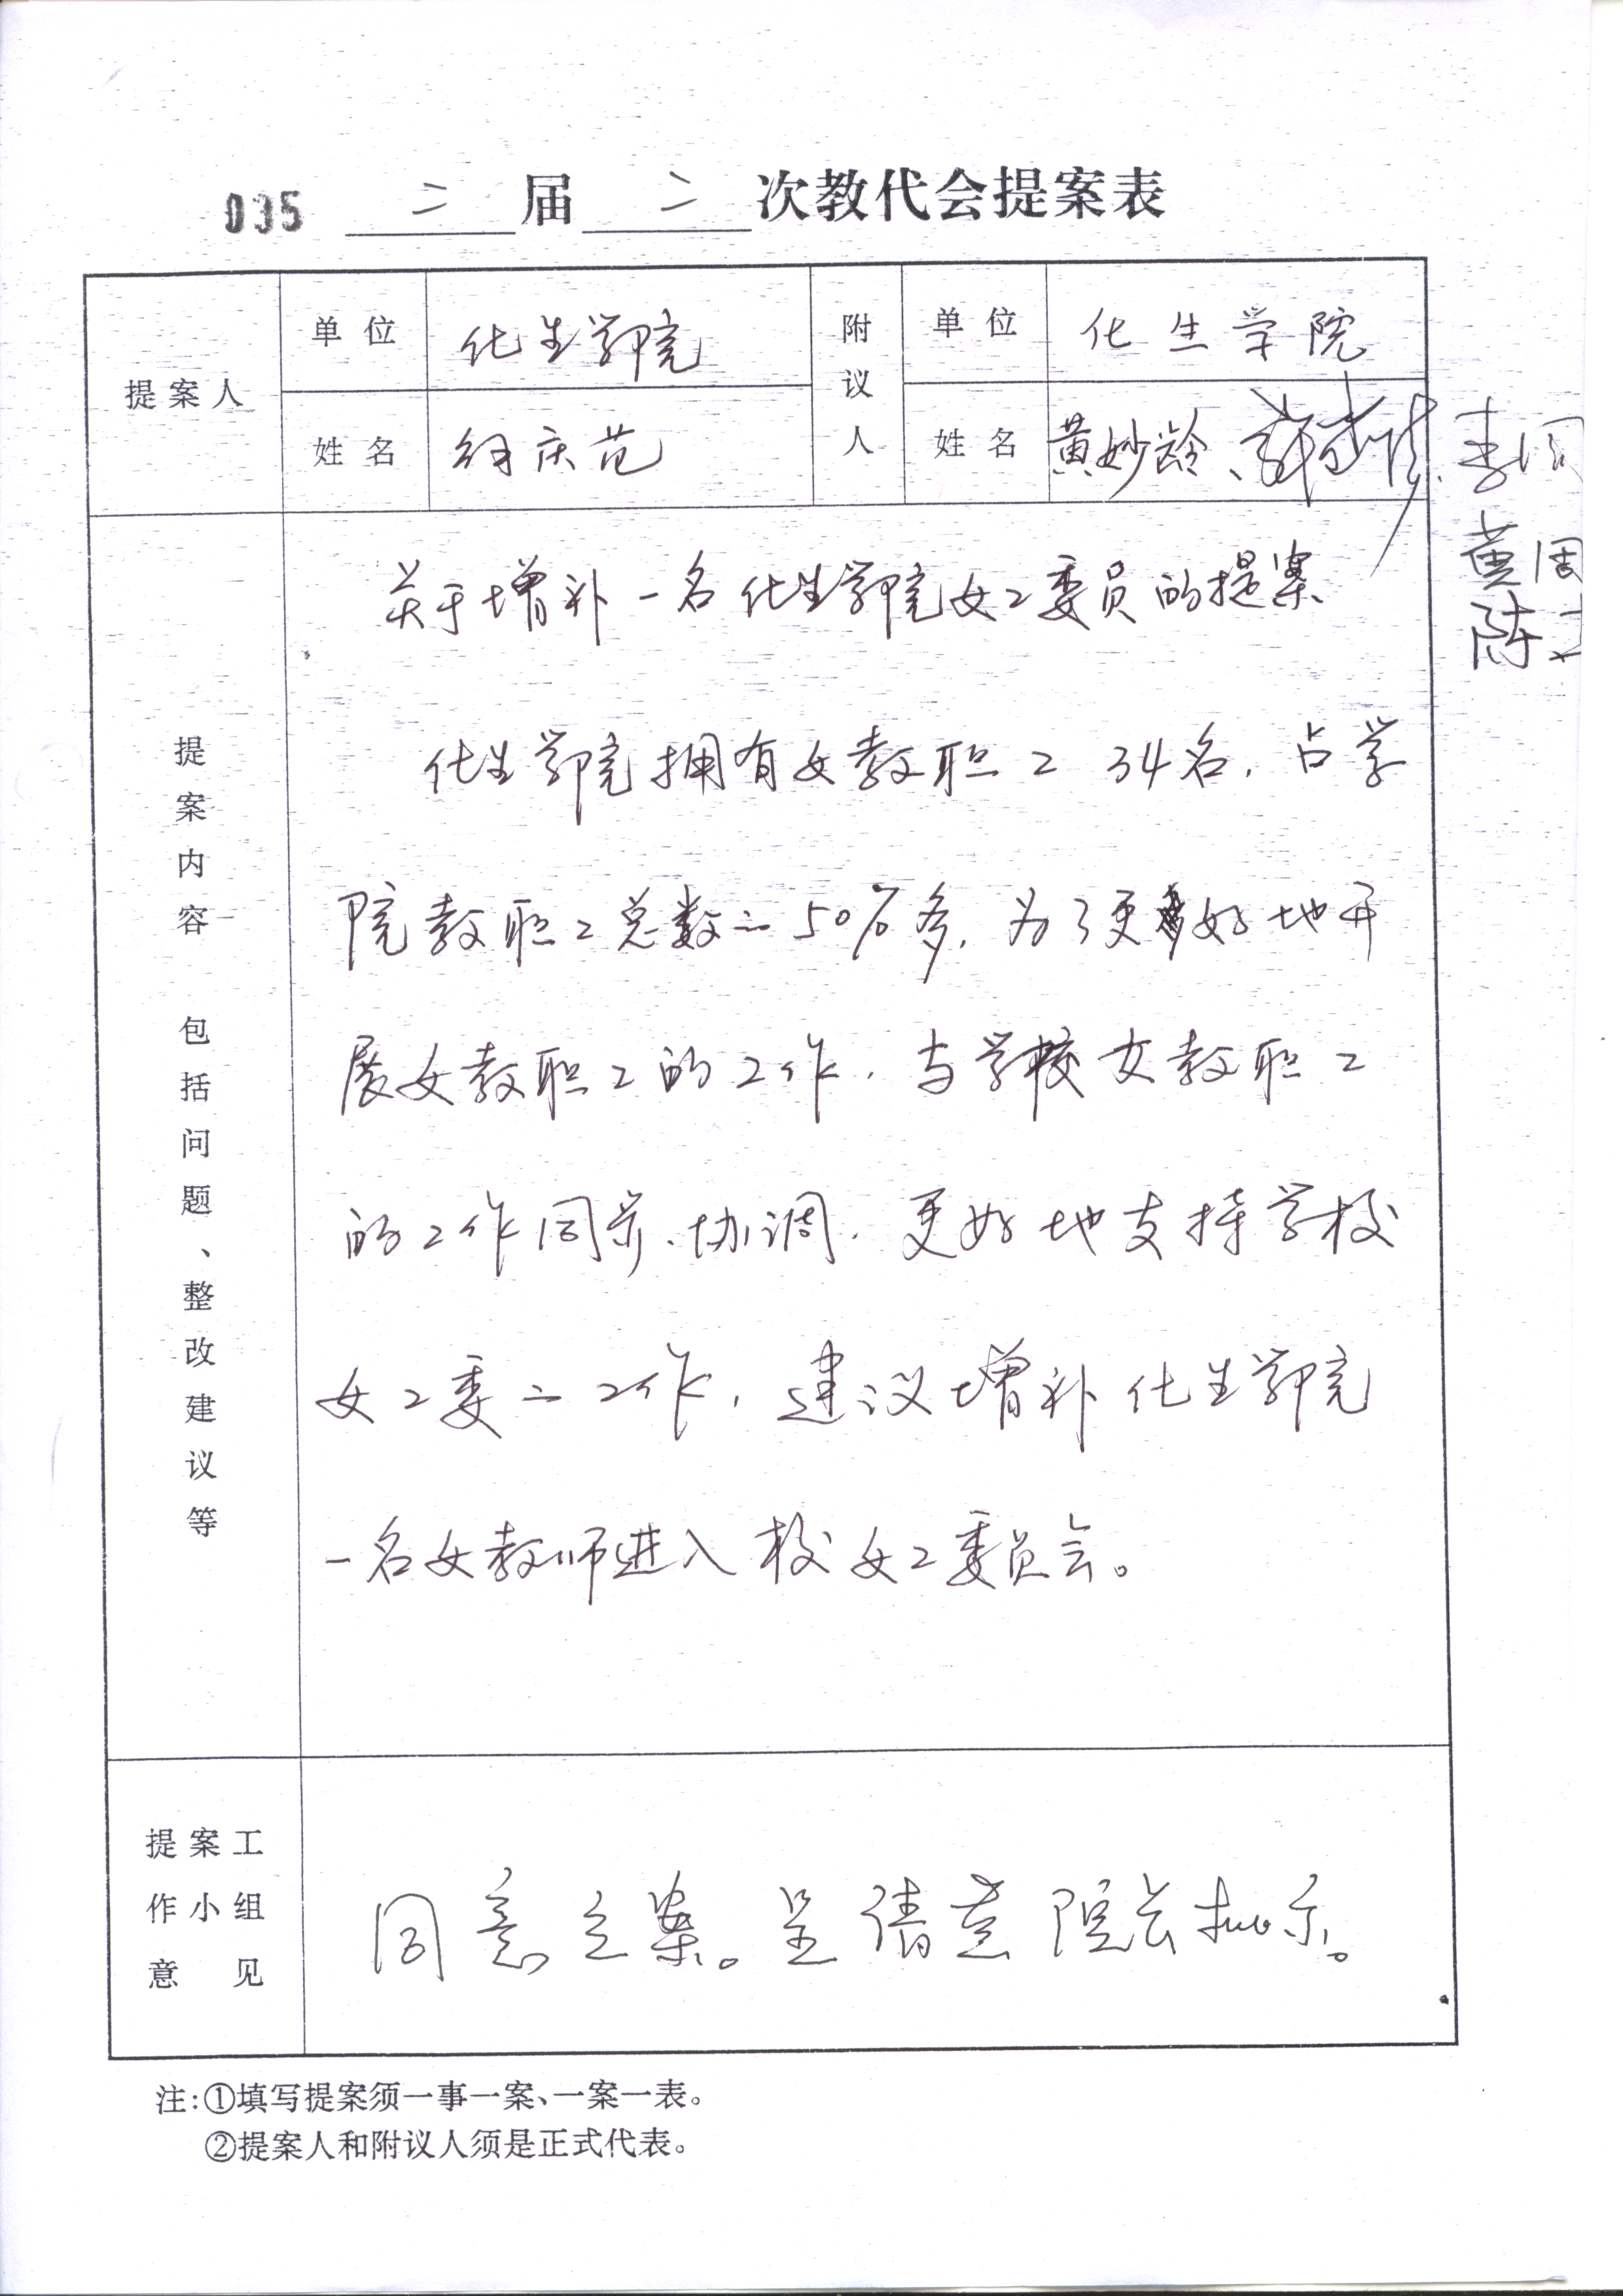 035 二 届 二 次教代会提案表
提案人 单位 化生学院 附议人 单位 化生学院
姓名 徐庆范 姓名 黄妙龄、
黄
陈
提案内容 包括问题、整改建议等
关于增补一名化生学院女工委员的提案
化生学院拥有女教职工34名,占学
院教职工总数的50%多,为了更好地开
展女教职工的工作,与学校女教职工
的工作同步、协调,更好地支持学校
女工委的工作,建议增补化生学院
一名女教师进入校女工委员会。
提案工作小组意见 同意立案。呈请 院长批示。
注:①填写提案须一事一案、一案一表。
②提案人和附议人须是正式代表。